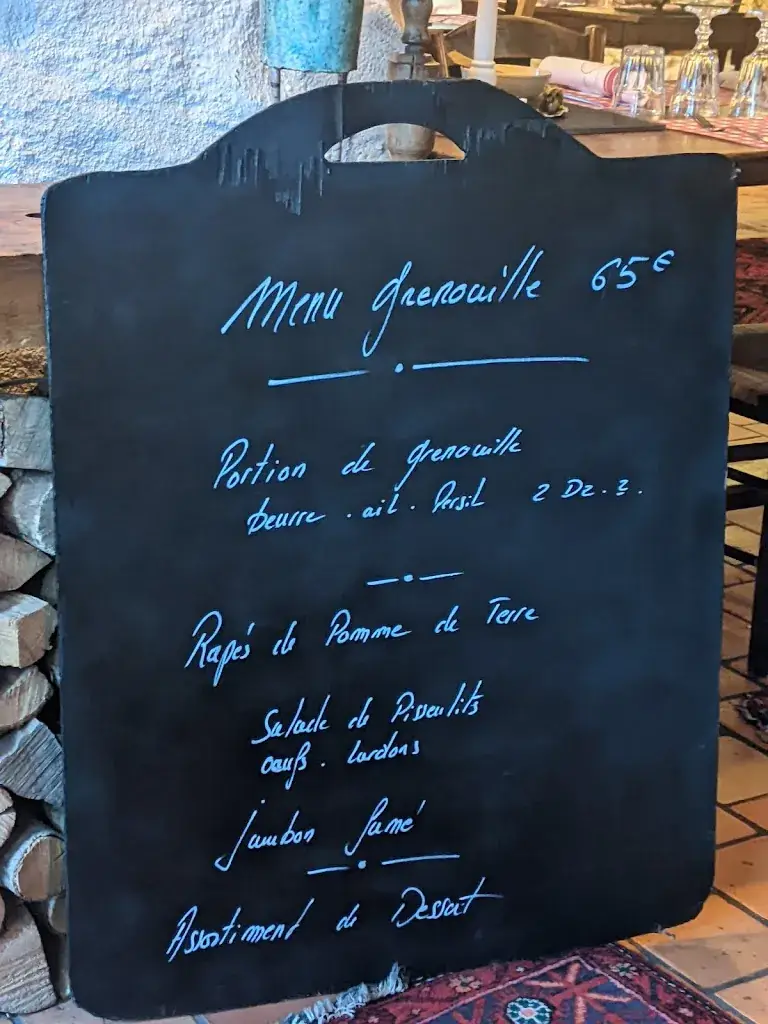 Menu grenouille 65€
Portion de grenouille
beurre . ail . Persil 2 Dz.
Rapés de Pomme de Terre
Salade de Pissenlits
oeufs . lardons
jambon fumé
Assortiment de Dessert